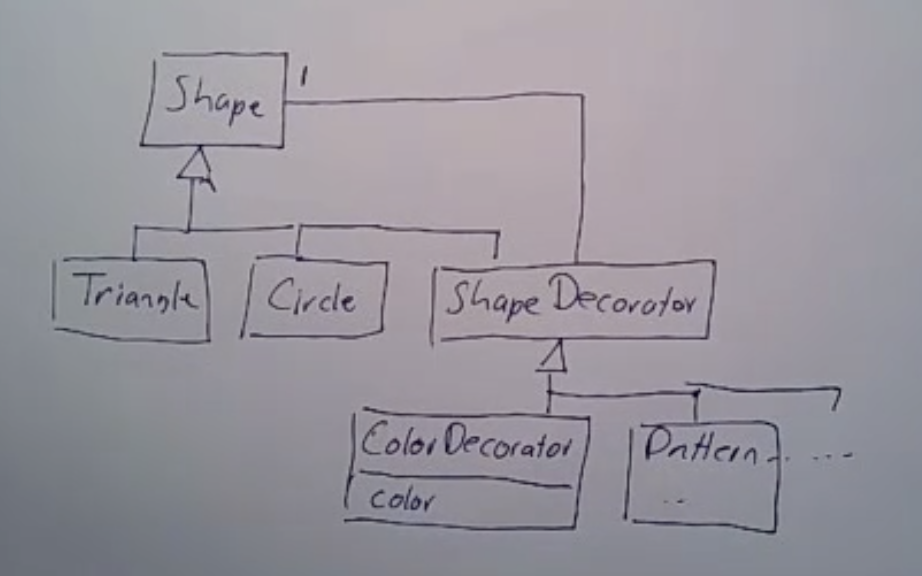 Shape
1
Triangle
Circle
Shape Decorator
ColorDecorator
Pattern-. ...
color
..